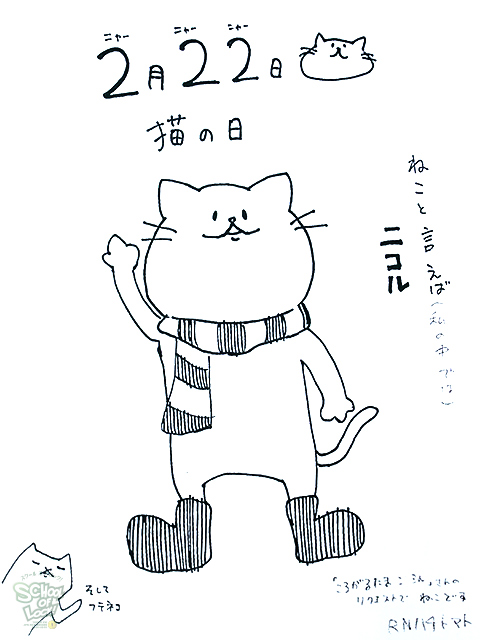 ニャー ニャー ニャー
2月22日
猫の日
ねこと言えば(私の中では)
ニコル
そして
フテネコ
SCHOOL OF LOCK!
「ころがるたまこ さん」さんの
リクエストで ねこです